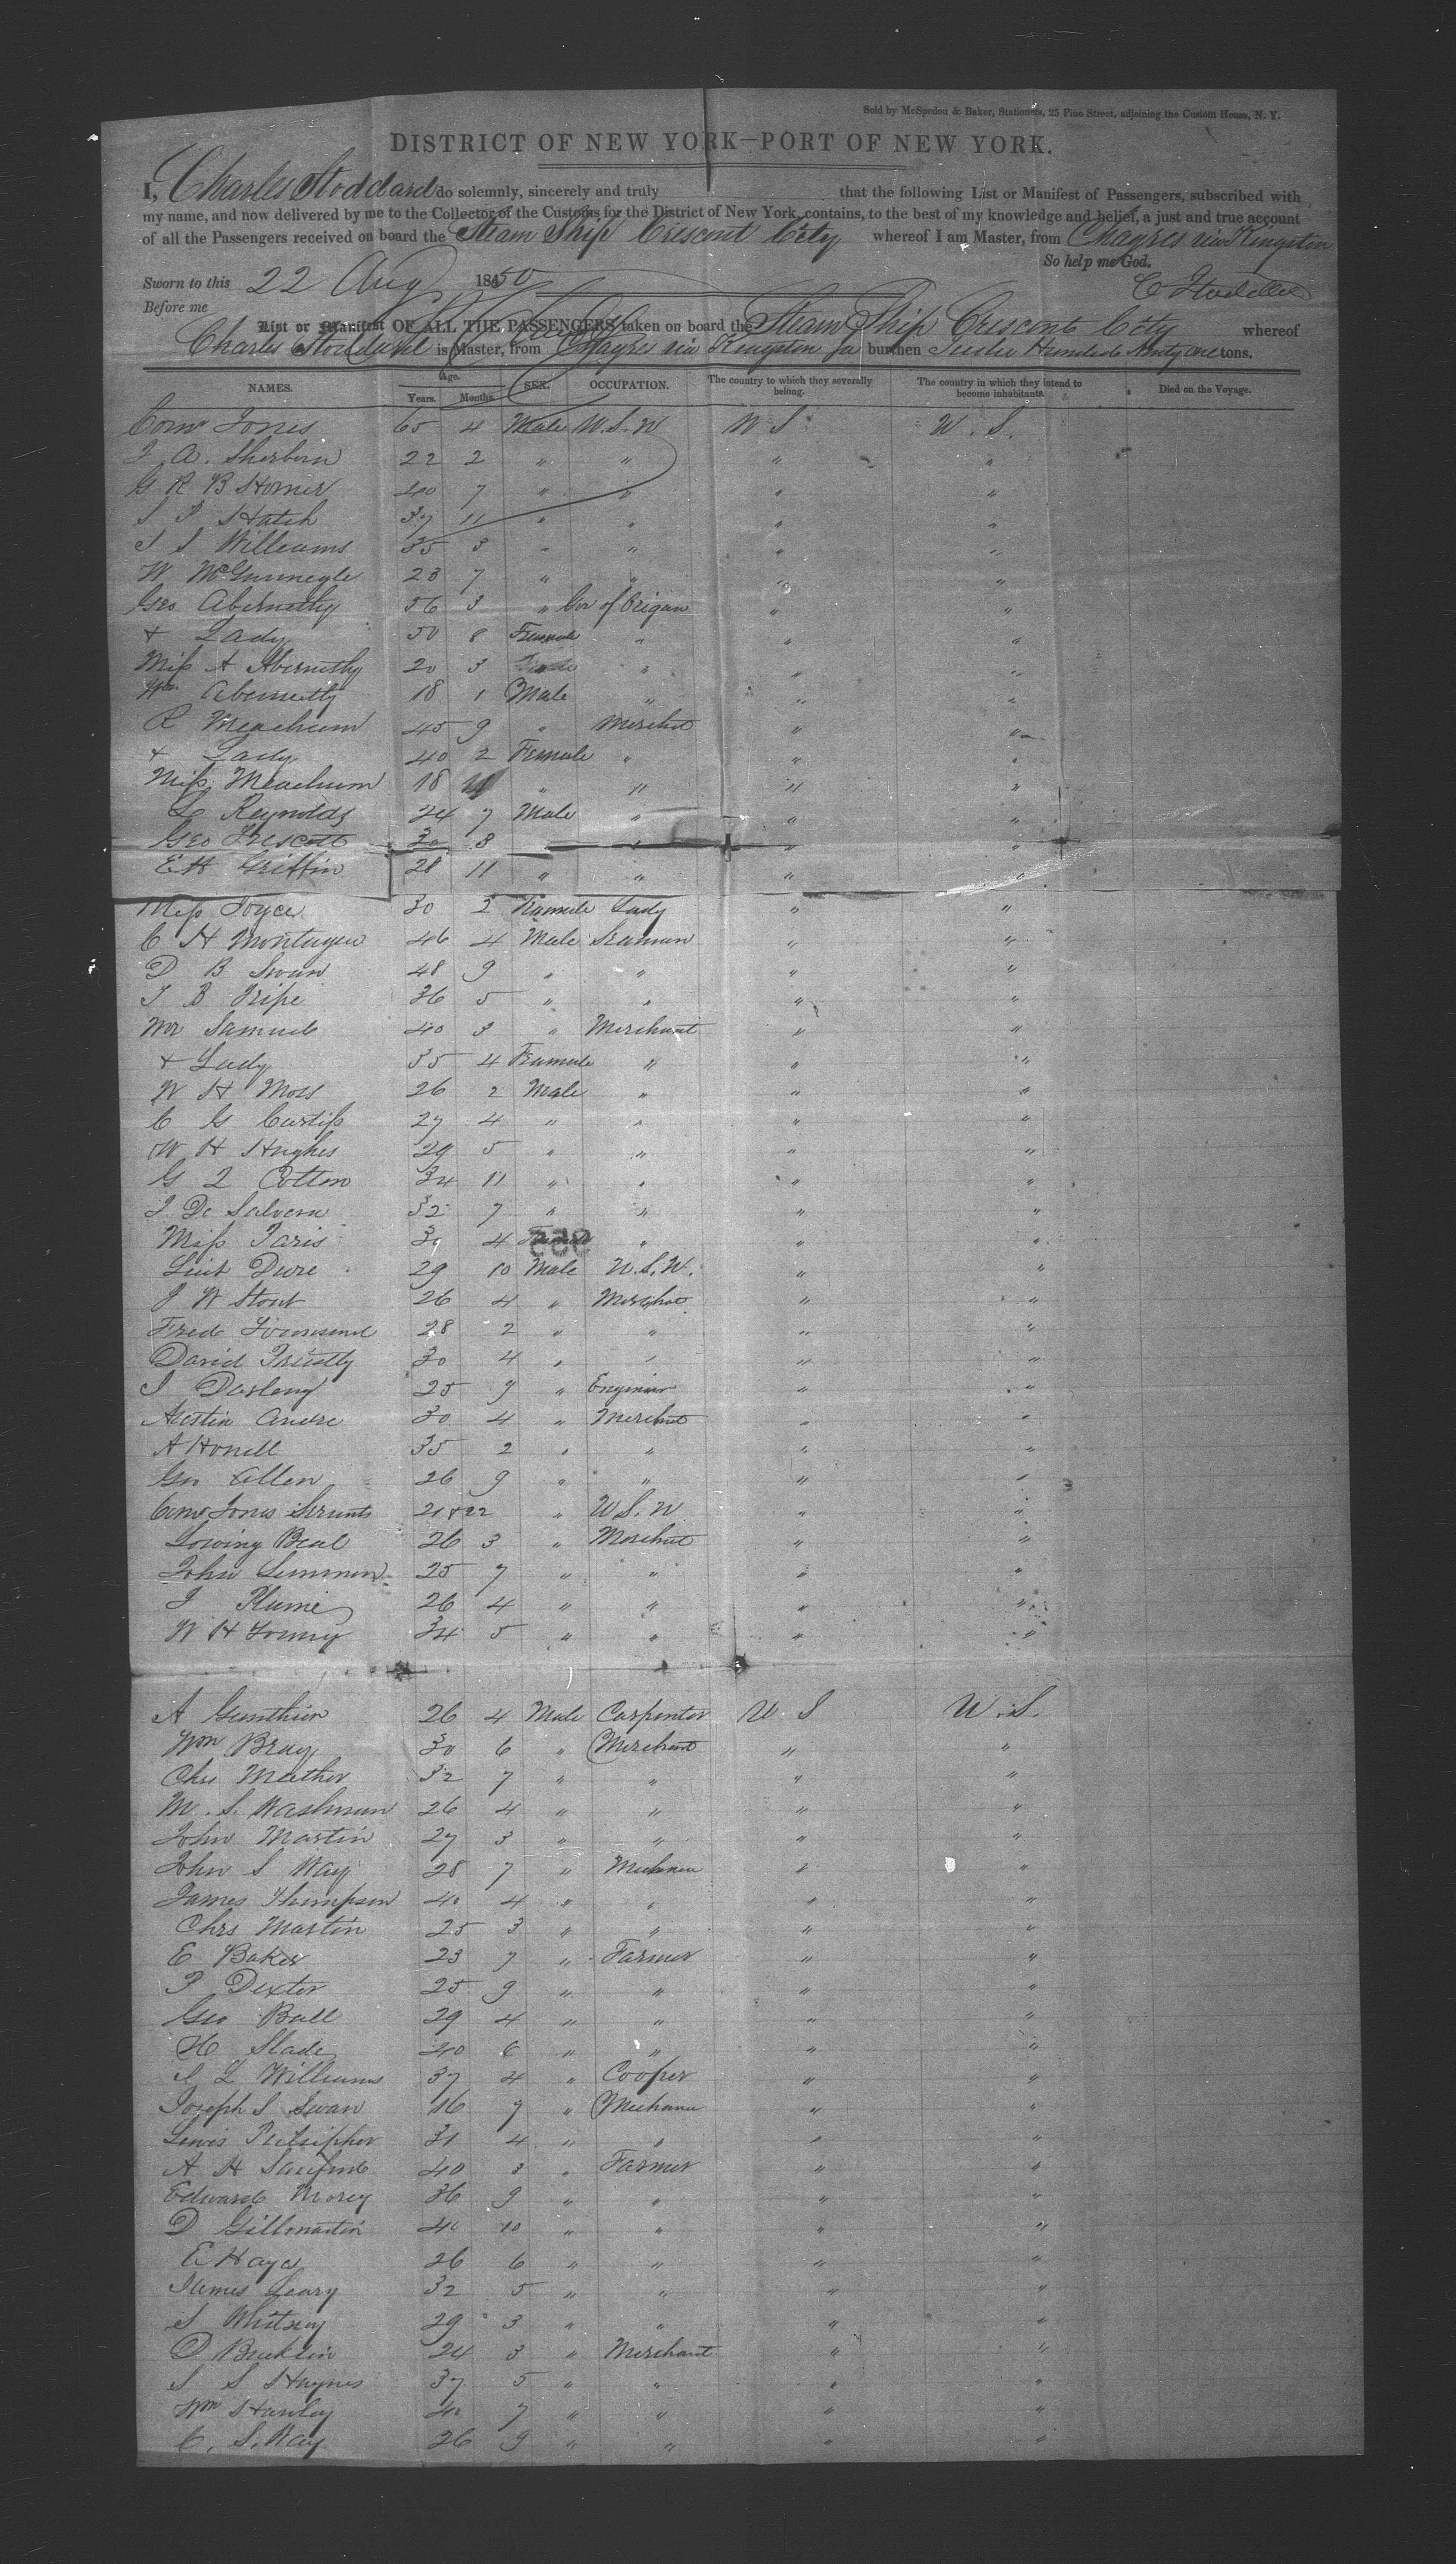 Sold by McSpedon & Baker, Stationers, 25 Pine Street, adjoining the Custom House, N. Y.
DISTRICT OF NEW YORK—PORT OF NEW YORK.
I, Charles Stoddard do solemnly, sincerely and truly that the following List or Manifest of Passengers, subscribed with
my name, and now delivered by me to the Collector of the Customs for the District of New York, contains, to the best of my knowledge and belief, a just and true account
of all the Passengers received on board the Steam Ship Crescent City whereof I am Master, from Chagres via Kingston
So help me God.
Sworn to this 22 Aug 1850 C Stoddard
Before me
List or Manifest OF ALL THE PASSENGERS taken on board the Steam Ship Crescent City whereof
Charles Stoddard is Master, from Chagres via Kingston Ja burthen Twelve Hundred Ninty one tons.
NAMES. Age. Years. Months. SEX. OCCUPATION. The country to which they severally belong. The country in which they intend to become inhabitants. Died on the Voyage.
Com Jones 65 4 Male U.S.N U S U.S.
J A. Sherborn 22 2 " " " "
G R B Horner 40 7 " " " "
S P Hatch 37 11 " " " "
J S Williams 35 3 " " " "
W McGunnegle 23 7 " " " "
Geo Abernethy 56 3 " Gov of Origan " "
+ Lady 50 8 Female " " "
Miss A Abernethy 20 3 " " "
Wm Abernethy 18 1 Male " " "
R Meachum 45 9 " Merchnt " "
+ Lady 40 2 Female " " "
Miss Meachum 18 " " " "
L Reynolds 24 7 Male " " "
Geo Prescott 30 8 " " "
E H Griffin 28 11 " " " "
Miss Joyce 30 2 Female Lady " "
C H Montague 46 4 Male Seaman " "
D B Swan 48 9 " " " "
T B Tripe 36 5 " " " "
Mr Samuels 40 3 " Merchant " "
+ Lady 35 4 Female " " "
W H Moss 26 2 Male " " "
C G Curtiss 27 4 " " " "
W H Hughes 29 5 " " " "
G L Cotton 34 11 " " " "
J De Salvera 32 7 " " " "
Miss Paris 30 4 Female " " "
555
Liut Dure 29 10 Male U.S.N. " "
J W Stout 26 4 " Merchat " "
Fred Townsend 28 2 " " " "
David Priestly 30 4 " " " "
J Darleng 25 9 " Enginier " "
Austin Andre 30 4 " Merchnt " "
A Honell 35 2 " " " "
Geo Allen 26 9 " " " "
Com Jones Serunts 21+22 " U S. N " "
Lowing Beal 26 3 " Merchnt " "
John Lemmon 25 7 " " " "
J Plume 26 4 " " " "
W H Young 34 5 " " " "
A Gunthier 26 4 Male Carpenter U S U.S.
Wm Bray 30 6 " Merchant " "
Chs Mather 32 7 " " " "
M. S. Washmun 26 4 " " " "
John Martin 27 3 " " " "
John S Way 28 7 " Mechanic " "
James Thompson 40 4 " " " "
Chrs Martin 25 3 " " " "
E Baker 23 7 " Farmer " "
P Dexter 25 9 " " " "
Geo Ball 29 4 " " " "
H Slade 40 6 " " " "
S L Williams 37 4 " Cooper " "
Joseph S Swan 16 7 " Mechanic " "
Lewis Pulsipher 31 4 " " " "
A H Sanford 40 3 " Farmer " "
Edward Morey 36 9 " " " "
D Gillmartin 40 10 " " " "
E Hayes 26 6 " " " "
James Leary 32 5 " " " "
S Whitney 29 3 " " " "
D Bucklin 24 3 " Merchant " "
S S Haynes 37 5 " " " "
Wm Hawley 40 7 " " " "
C. S. Way 26 9 " " " "